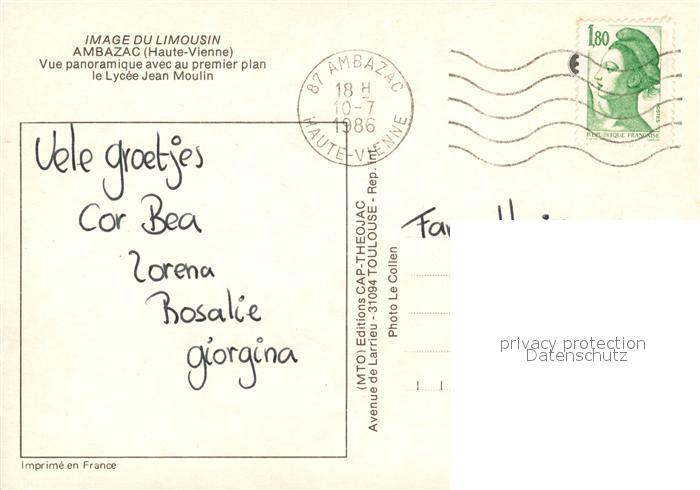 IMAGE DU LIMOUSIN
AMBAZAC (Haute-Vienne)
Vue panoramique avec au premier plan
le Lycée Jean Moulin
87 AMBAZAC
18 H
10-7
1986
HAUTE-VIENNE
1,80
REPUBLIQUE FRANÇAISE
Vele groetjes
Cor Bea
Lorena
Rosalie
giorgina
(MTO) Editions CAP-THEOJAC
Avenue de Larrieu - 31094 TOULOUSE - Rep. Int.
Photo Le Collen
Fam
privacy protection
Datenschutz
Imprimé en France